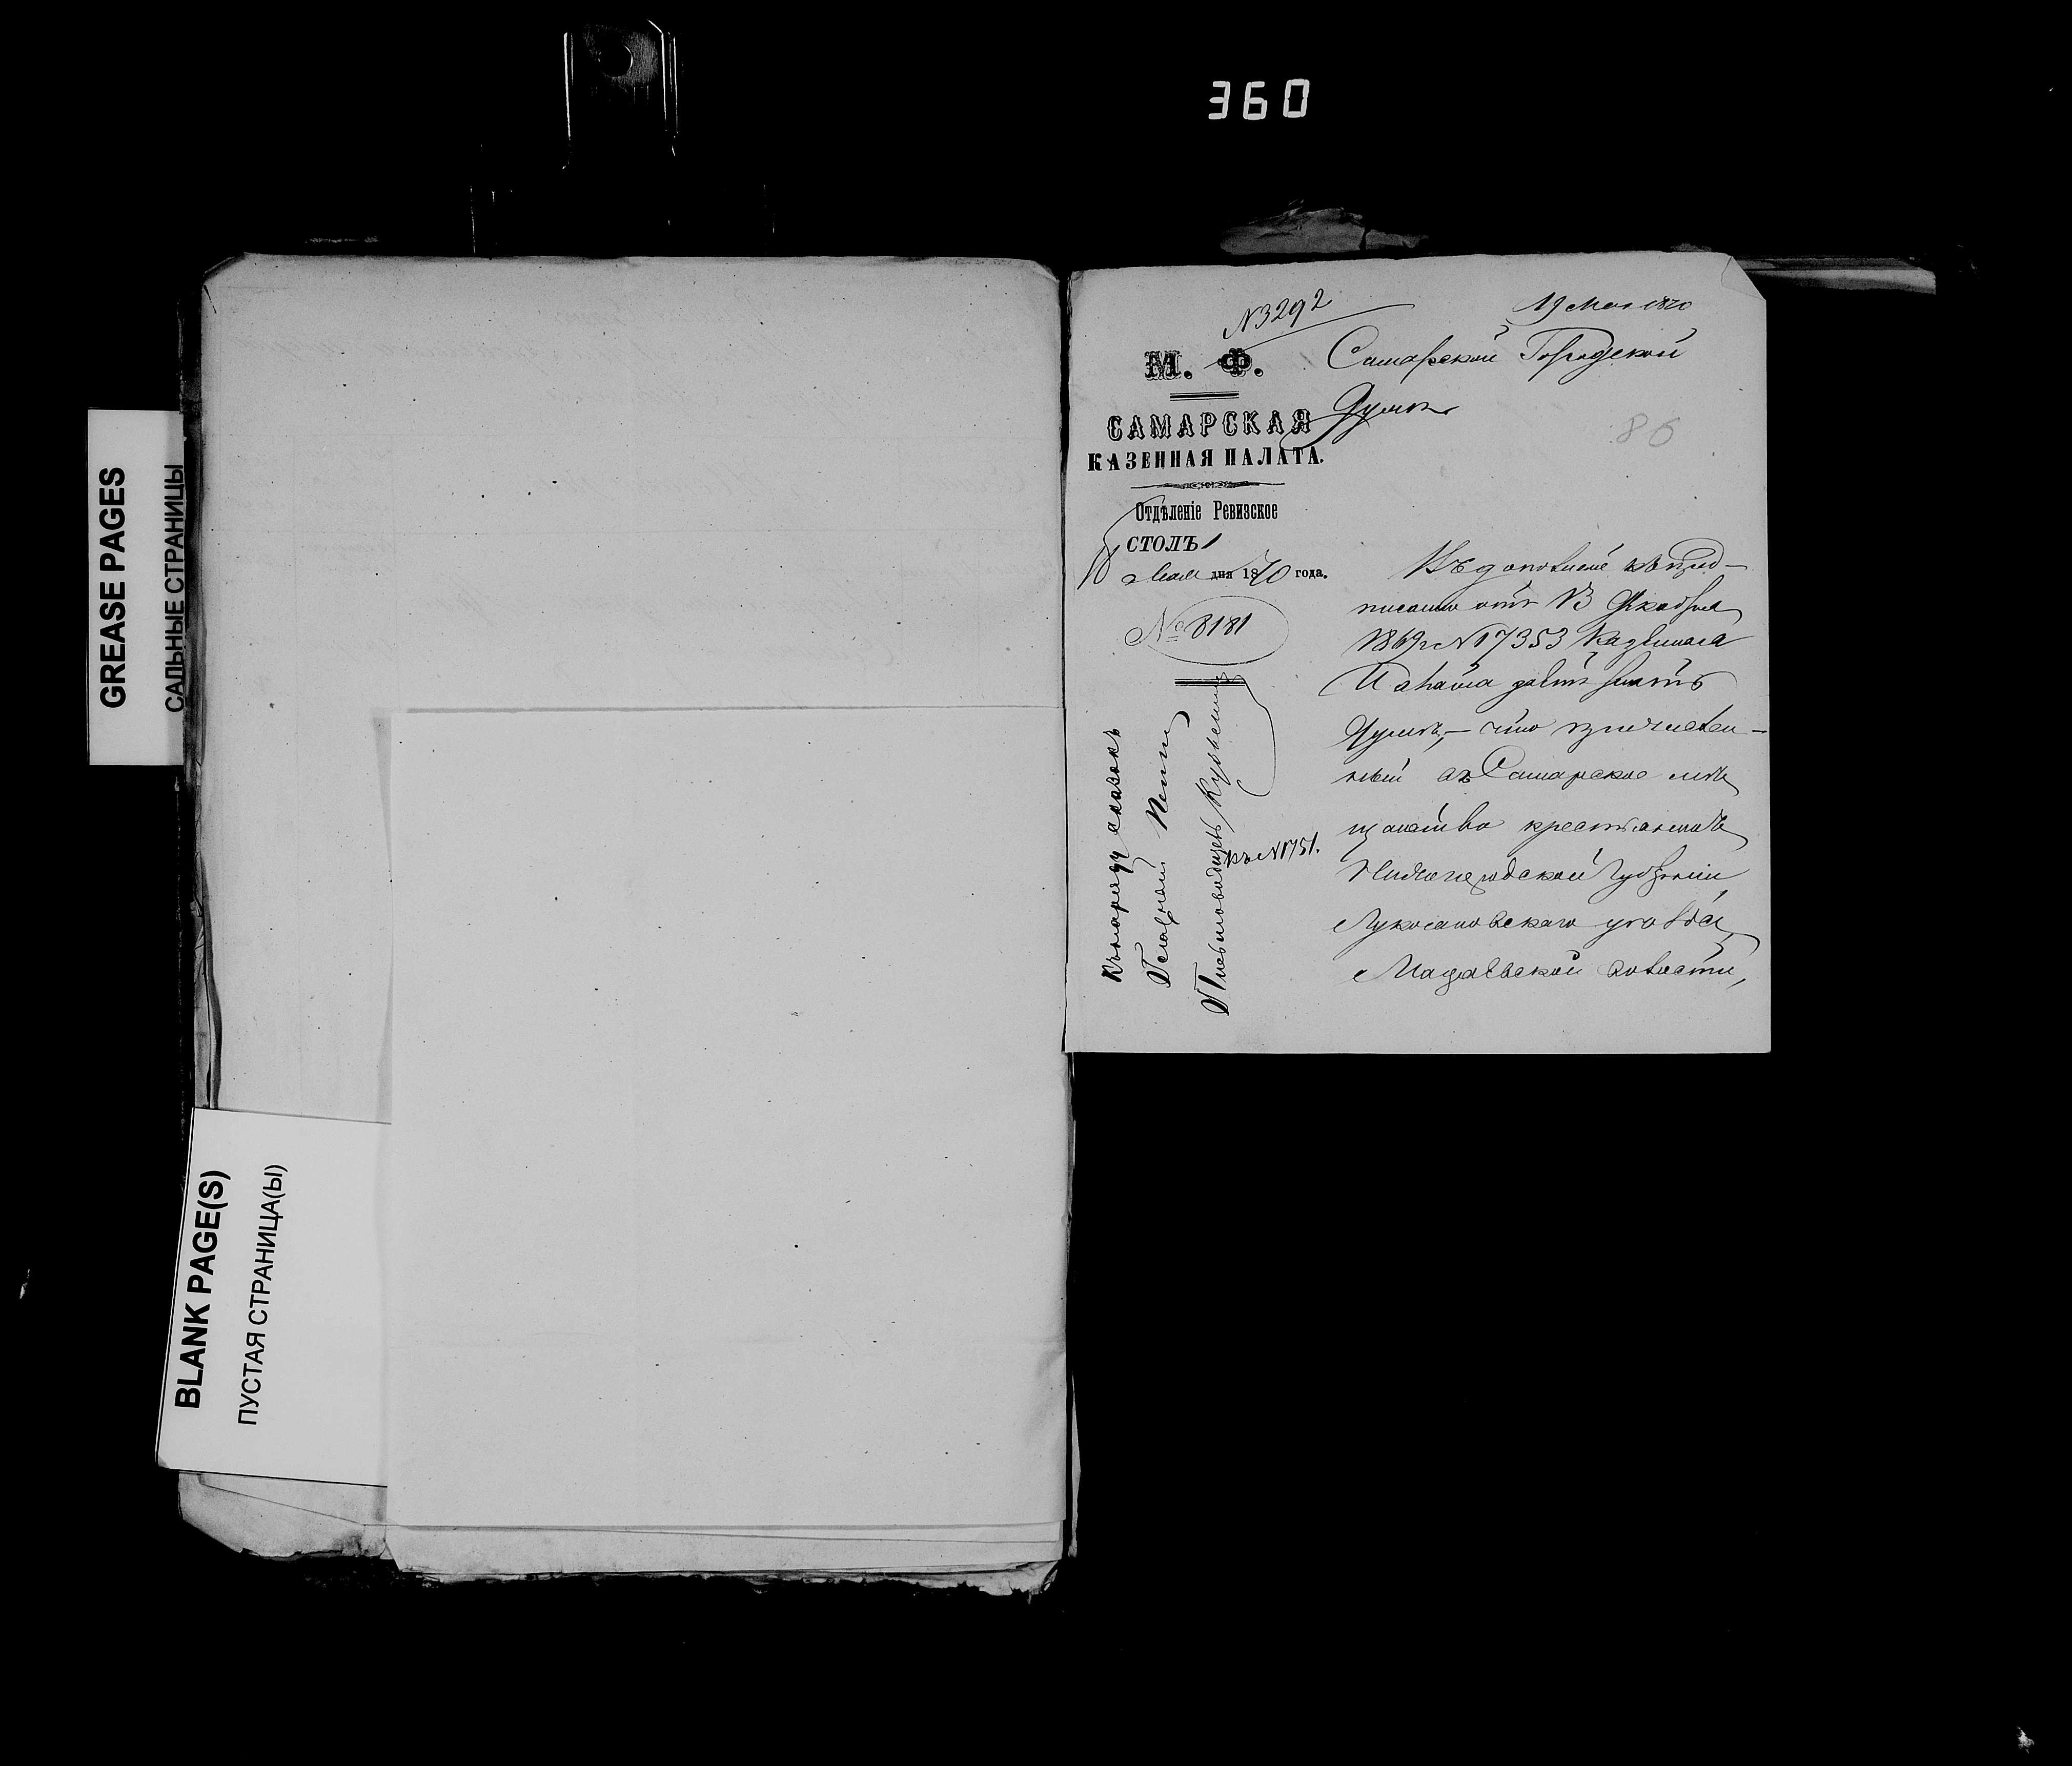 360
GREASE PAGES
САЛЬНЫЕ СТРАНИЦЫ
BLANK PAGE(S)
ПУСТАЯ СТРАНИЦА(Ы)
N3292
19 Мая 1870
М. Ф.
САМАРСКАЯ
КАЗЕННАЯ ПАЛАТА.
Отдѣленіе Ревизское
СТОЛЪ 1
18 Мая дня 1870 года.
№ 8181
къ N 1751.
Самарской Городской
Думѣ
86
Въ дополненіе къ пред-
писанію отъ 13 Декабря
1869 г. N 17353 Казенная
Палата даетъ знать
Думѣ, - что причислен-
ный въ Самарское мѣ
щанство крестьянинъ
Нижегородской Губерніи,
Лукояновскаго уѣзда,
Мадаевской волости,
Къ наряду сказокъ